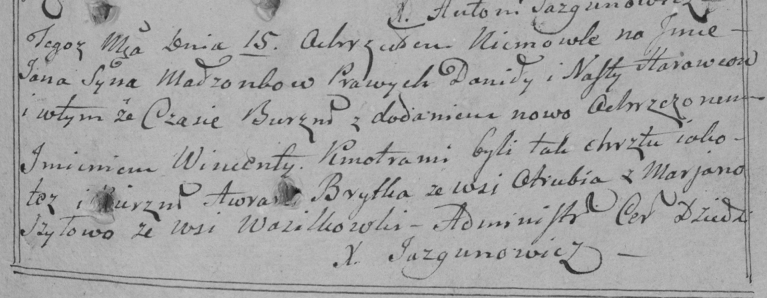 X. Antoni Jazgunowicz
Tegoż Mca Dnia 15. Ochrzciłem Niemowle na Jmie –
Jana Syna Małżonkow Prawych Daniły i Nasty Harawcow
i wtym że Czasie Burzm z dodaniem nowo Ochrzczonemu
Jmieniem Wincenty. Kmotrami byli tak chrztu iako –
tez i Burzm Awram Brytka ze wsi Otrubia z Marjano
Szyłowo ze wsi Wasilkowki – Administr Cer Dziedzi
X. Jazgunowicz –